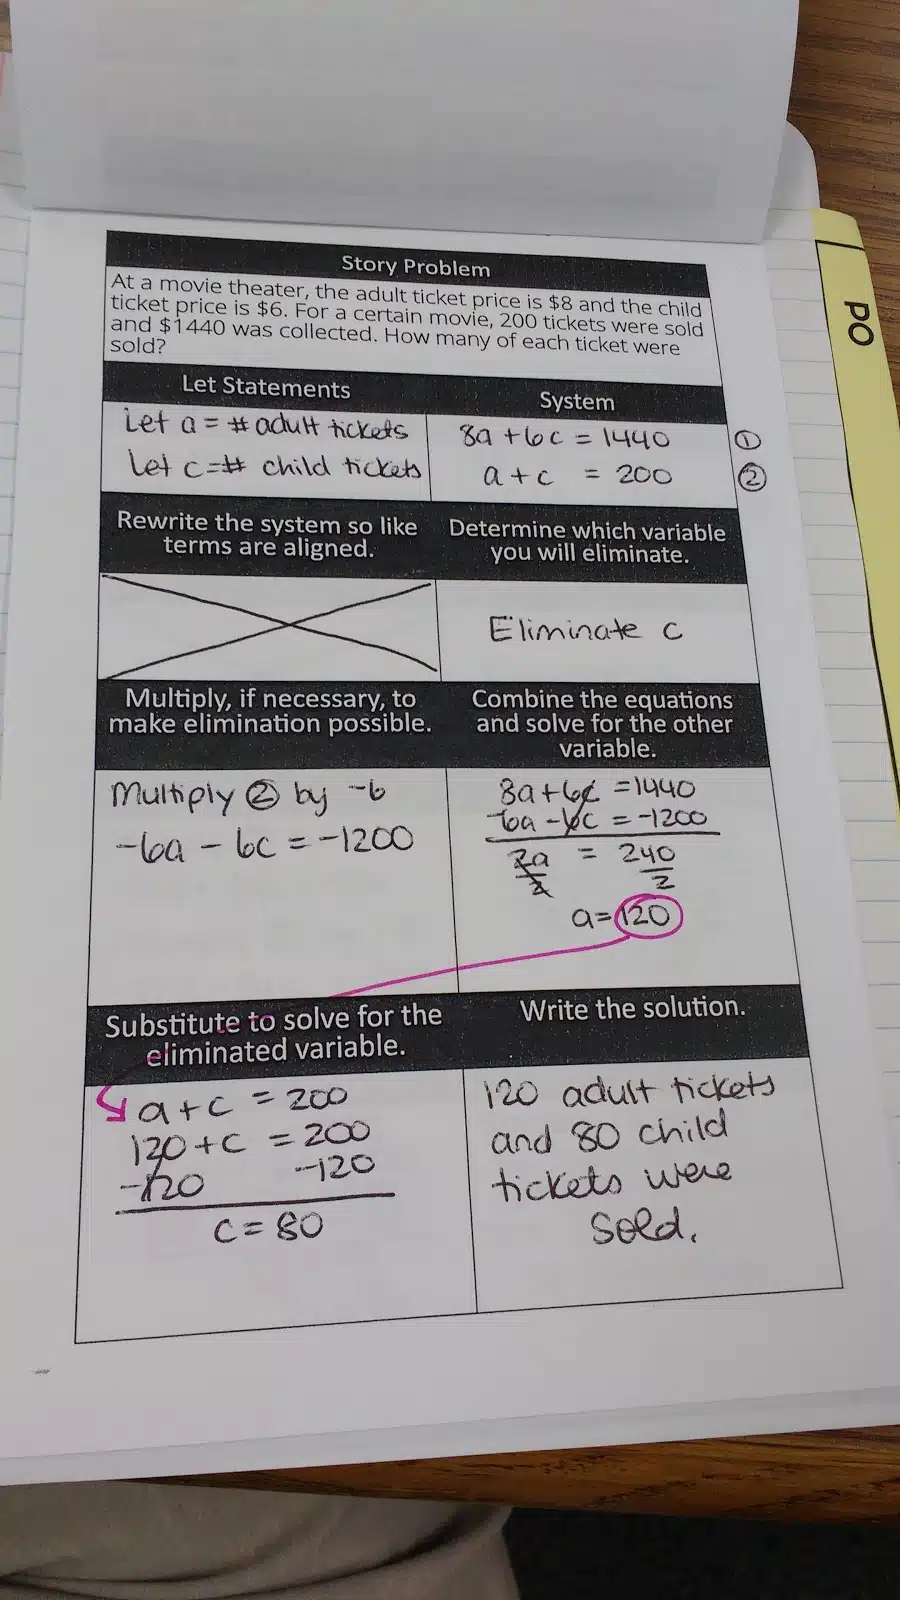 Story Problem
At a movie theater, the adult ticket price is $8 and the child
ticket price is $6. For a certain movie, 200 tickets were sold
and $1440 was collected. How many of each ticket were
sold?
Let Statements
Let a = # adult tickets
Let c = # child tickets
System
8a + 6c = 1440 ①
a + c = 200 ②
Rewrite the system so like
terms are aligned.
Determine which variable
you will eliminate.
Eliminate c
Multiply, if necessary, to
make elimination possible.
Multiply ② by -6
-6a - 6c = -1200
Combine the equations
and solve for the other
variable.
8a + 6c = 1440
-6a - 6c = -1200
2a = 240
2 2
a = 120
Substitute to solve for the
eliminated variable.
a + c = 200
120 + c = 200
-120 -120
c = 80
Write the solution.
120 adult tickets
and 80 child
tickets were
sold.
PO